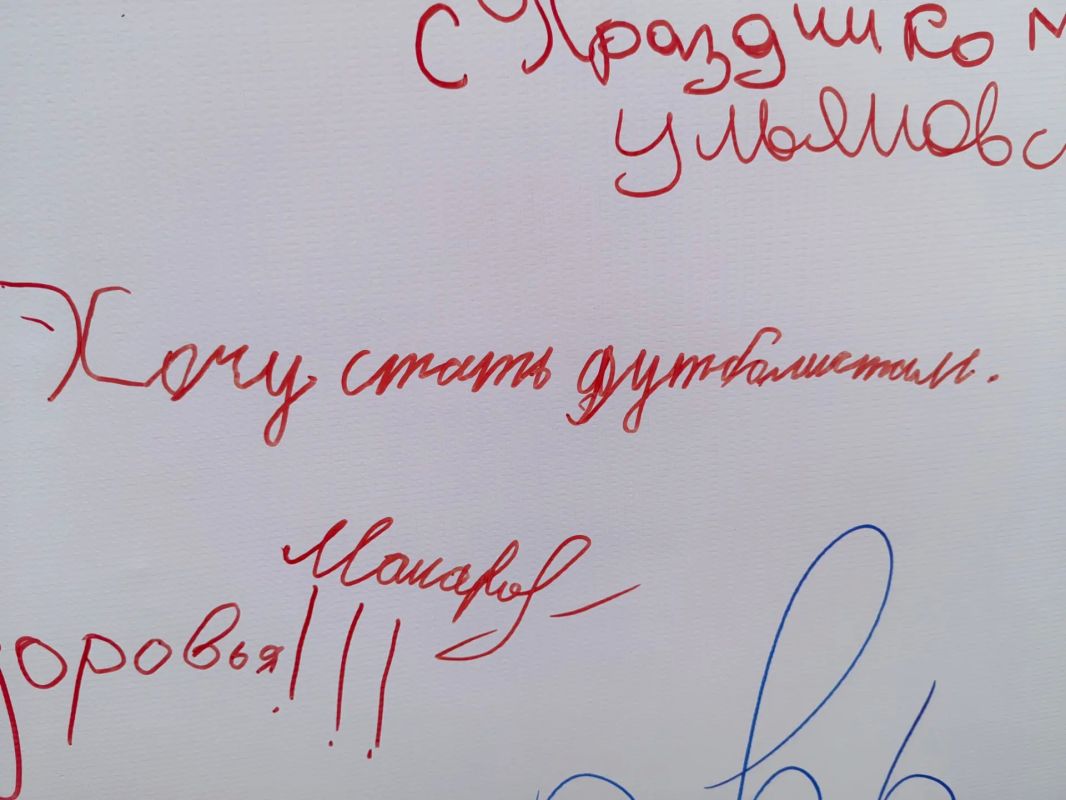 С Праздником
Ульяновс
Хочу стать футболистам.
Макаров
доровья!!!